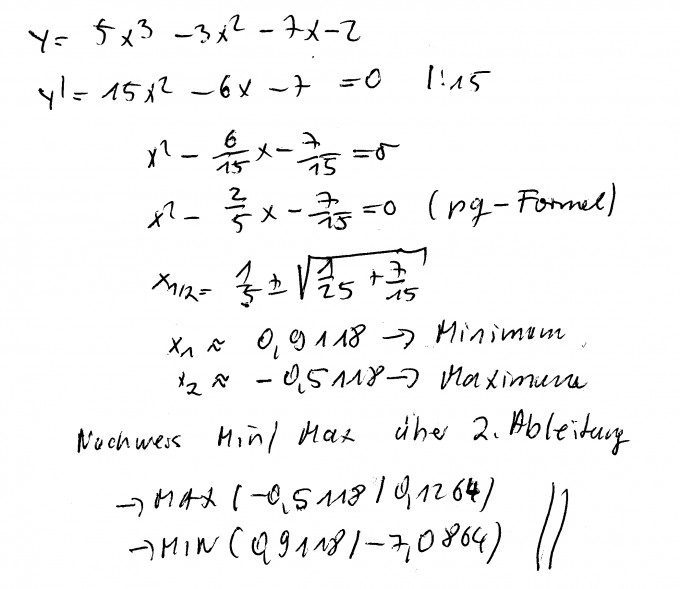 y = 5x³ - 3x² - 7x - 2
y' = 15x² - 6x - 7 = 0 |:15
x² - 6/15 x - 7/15 = 0
x² - 2/5 x - 7/15 = 0 (pq-Formel)
x₁/₂ = 1/5 ± √(1/25 + 7/15)
x₁ ≈ 0,9118 → Minimum
x₂ ≈ -0,5118 → Maximum
Nachweis Min/Max über 2. Ableitung
→ MAX (-0,5118 / 0,1264)
→ MIN (0,9118 / -7,0864)